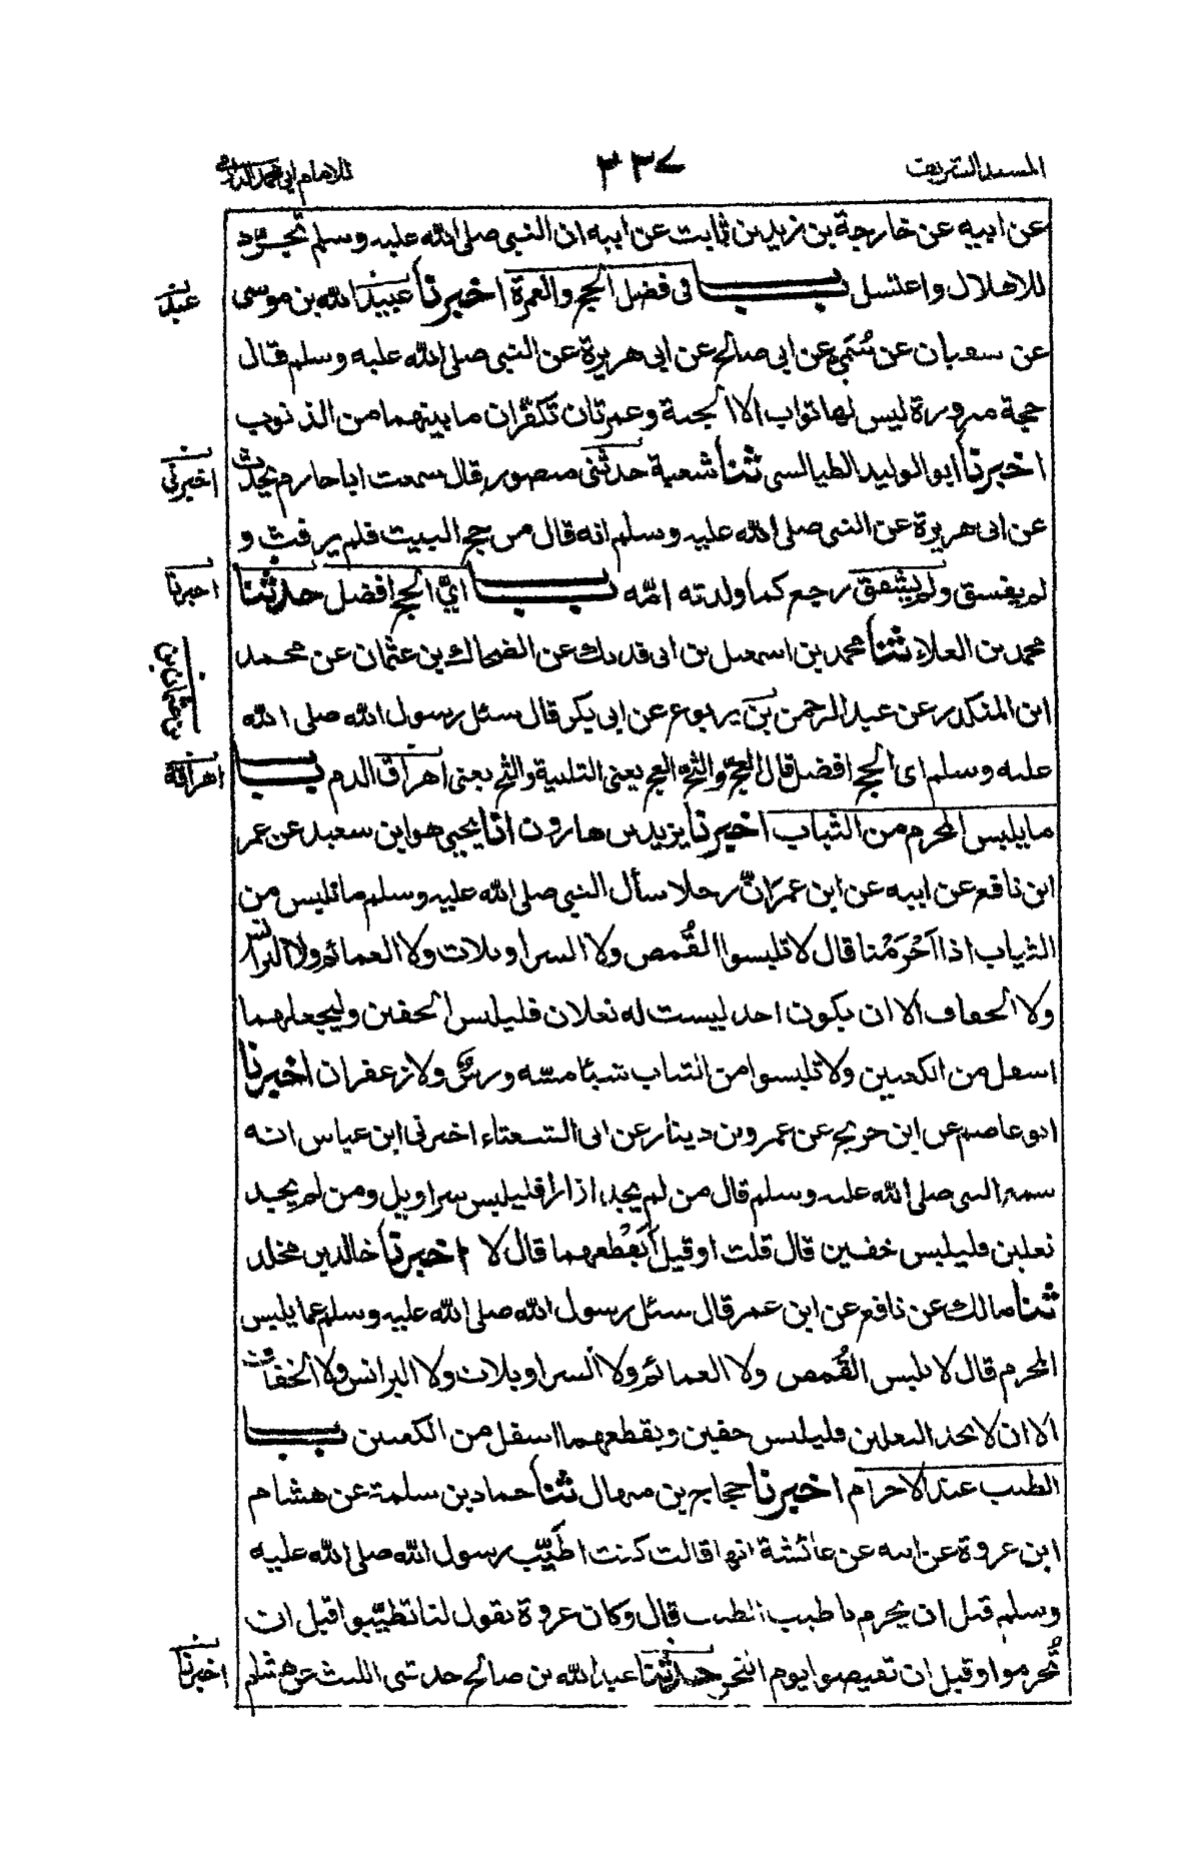 المسند الشريف ٢٣٧ للامام ابي محمد الدارمي
عن ابيه عن خارجة بن زيد بن ثابت عن ابيه ان النبي صلى الله عليه وسلم تجرّد
للاهلال واغتسل باب فى فضل الحج والعمرة اخبرنا عبيد الله بن موسى
عبد
عن سفيان عن سُمَي عن ابى صالح عن ابى هريرة عن النبى صلى الله عليه وسلم قال
حجة مبرورة ليس لها ثواب الا الجنة وعمرتان تكفّران ما بينهما من الذنوب
اخبرنا ابو الوليد الطيالسى ثنا شعبة حدثنى منصور قال سمعت ابا حازم يحدث
اخبرنى
عن ابى هريرة عن النبى صلى الله عليه وسلم انه قال من حج البيت فلم يرفث و
لم يفسق ولم رجع كما ولدته امّه باب ايّ الحج افضل حدثنا
اخبرنا
محمد بن العلاء ثنا محمد بن اسمعيل بن ابى فديك عن الضحاك بن عثمان عن محمد
بن عثمان بن
ابن المنكدر عن عبد الرحمن بن يربوع عن ابى بكر قال سئل رسول الله صلى الله
عليه وسلم اى الحج افضل قال العجّ والثجّ العج يعنى التلبية والثج يعنى اهراق الدم باب
اهراقة
ما يلبس المحرم من الثياب اخبرنا يزيد بن هارون انا يحيى هو ابن سعيد عن عمر
ابن نافع عن ابيه عن ابن عمر انّ رجلا سأل النبي صلى الله عليه وسلم ما نلبس من
الثياب اذا اَحْرَمْنا قال لا تلبسوا القُمص ولا السراويلات ولا العمائم ولا البرانس
ولا الخفاف الا ان يكون احد ليست له نعلان فليلبس الخفين وليجعلهما
اسفل من الكعبين ولا تلبسوا من الثياب شيئا مسّه ورسٌ ولا زعفران اخبرنا
ابو عاصم عن ابن جريج عن عمرو بن دينار عن ابى الشعثاء اخبرنى ابن عباس انه
سمع النبى صلى الله عليه وسلم قال من لم يجد ازارا فليلبس سراويل ومن لم يجد
نعلين فليلبس خفين قال قلت او قيل أيقطعهما قال لا اخبرنا خالد بن مخلد
ثنا مالك عن نافع عن ابن عمر قال سئل رسول الله صلى الله عليه وسلم عما يلبس
المحرم قال لا يلبس القُمص ولا العمائم ولا السراويلات ولا البرانس ولا الخفاف
الا ان لا يجد النعلين فليلبس خفين ويقطعهما اسفل من الكعبين باب
الطيب عند الاحرام اخبرنا حجاج بن منهال ثنا حماد بن سلمة عن هشام
ابن عروة عن ابيه عن عائشة انها قالت كنت اطيّب رسول الله صلى الله عليه
وسلم قبل ان يحرم باطيب الطيب قال وكان عروة يقول لنا تطيّبوا قبل ان
تحرموا وقبل ان تفيضوا يوم النحر حدثنا عبد الله بن صالح حدثنى الليث عن هشام
اخبرنا